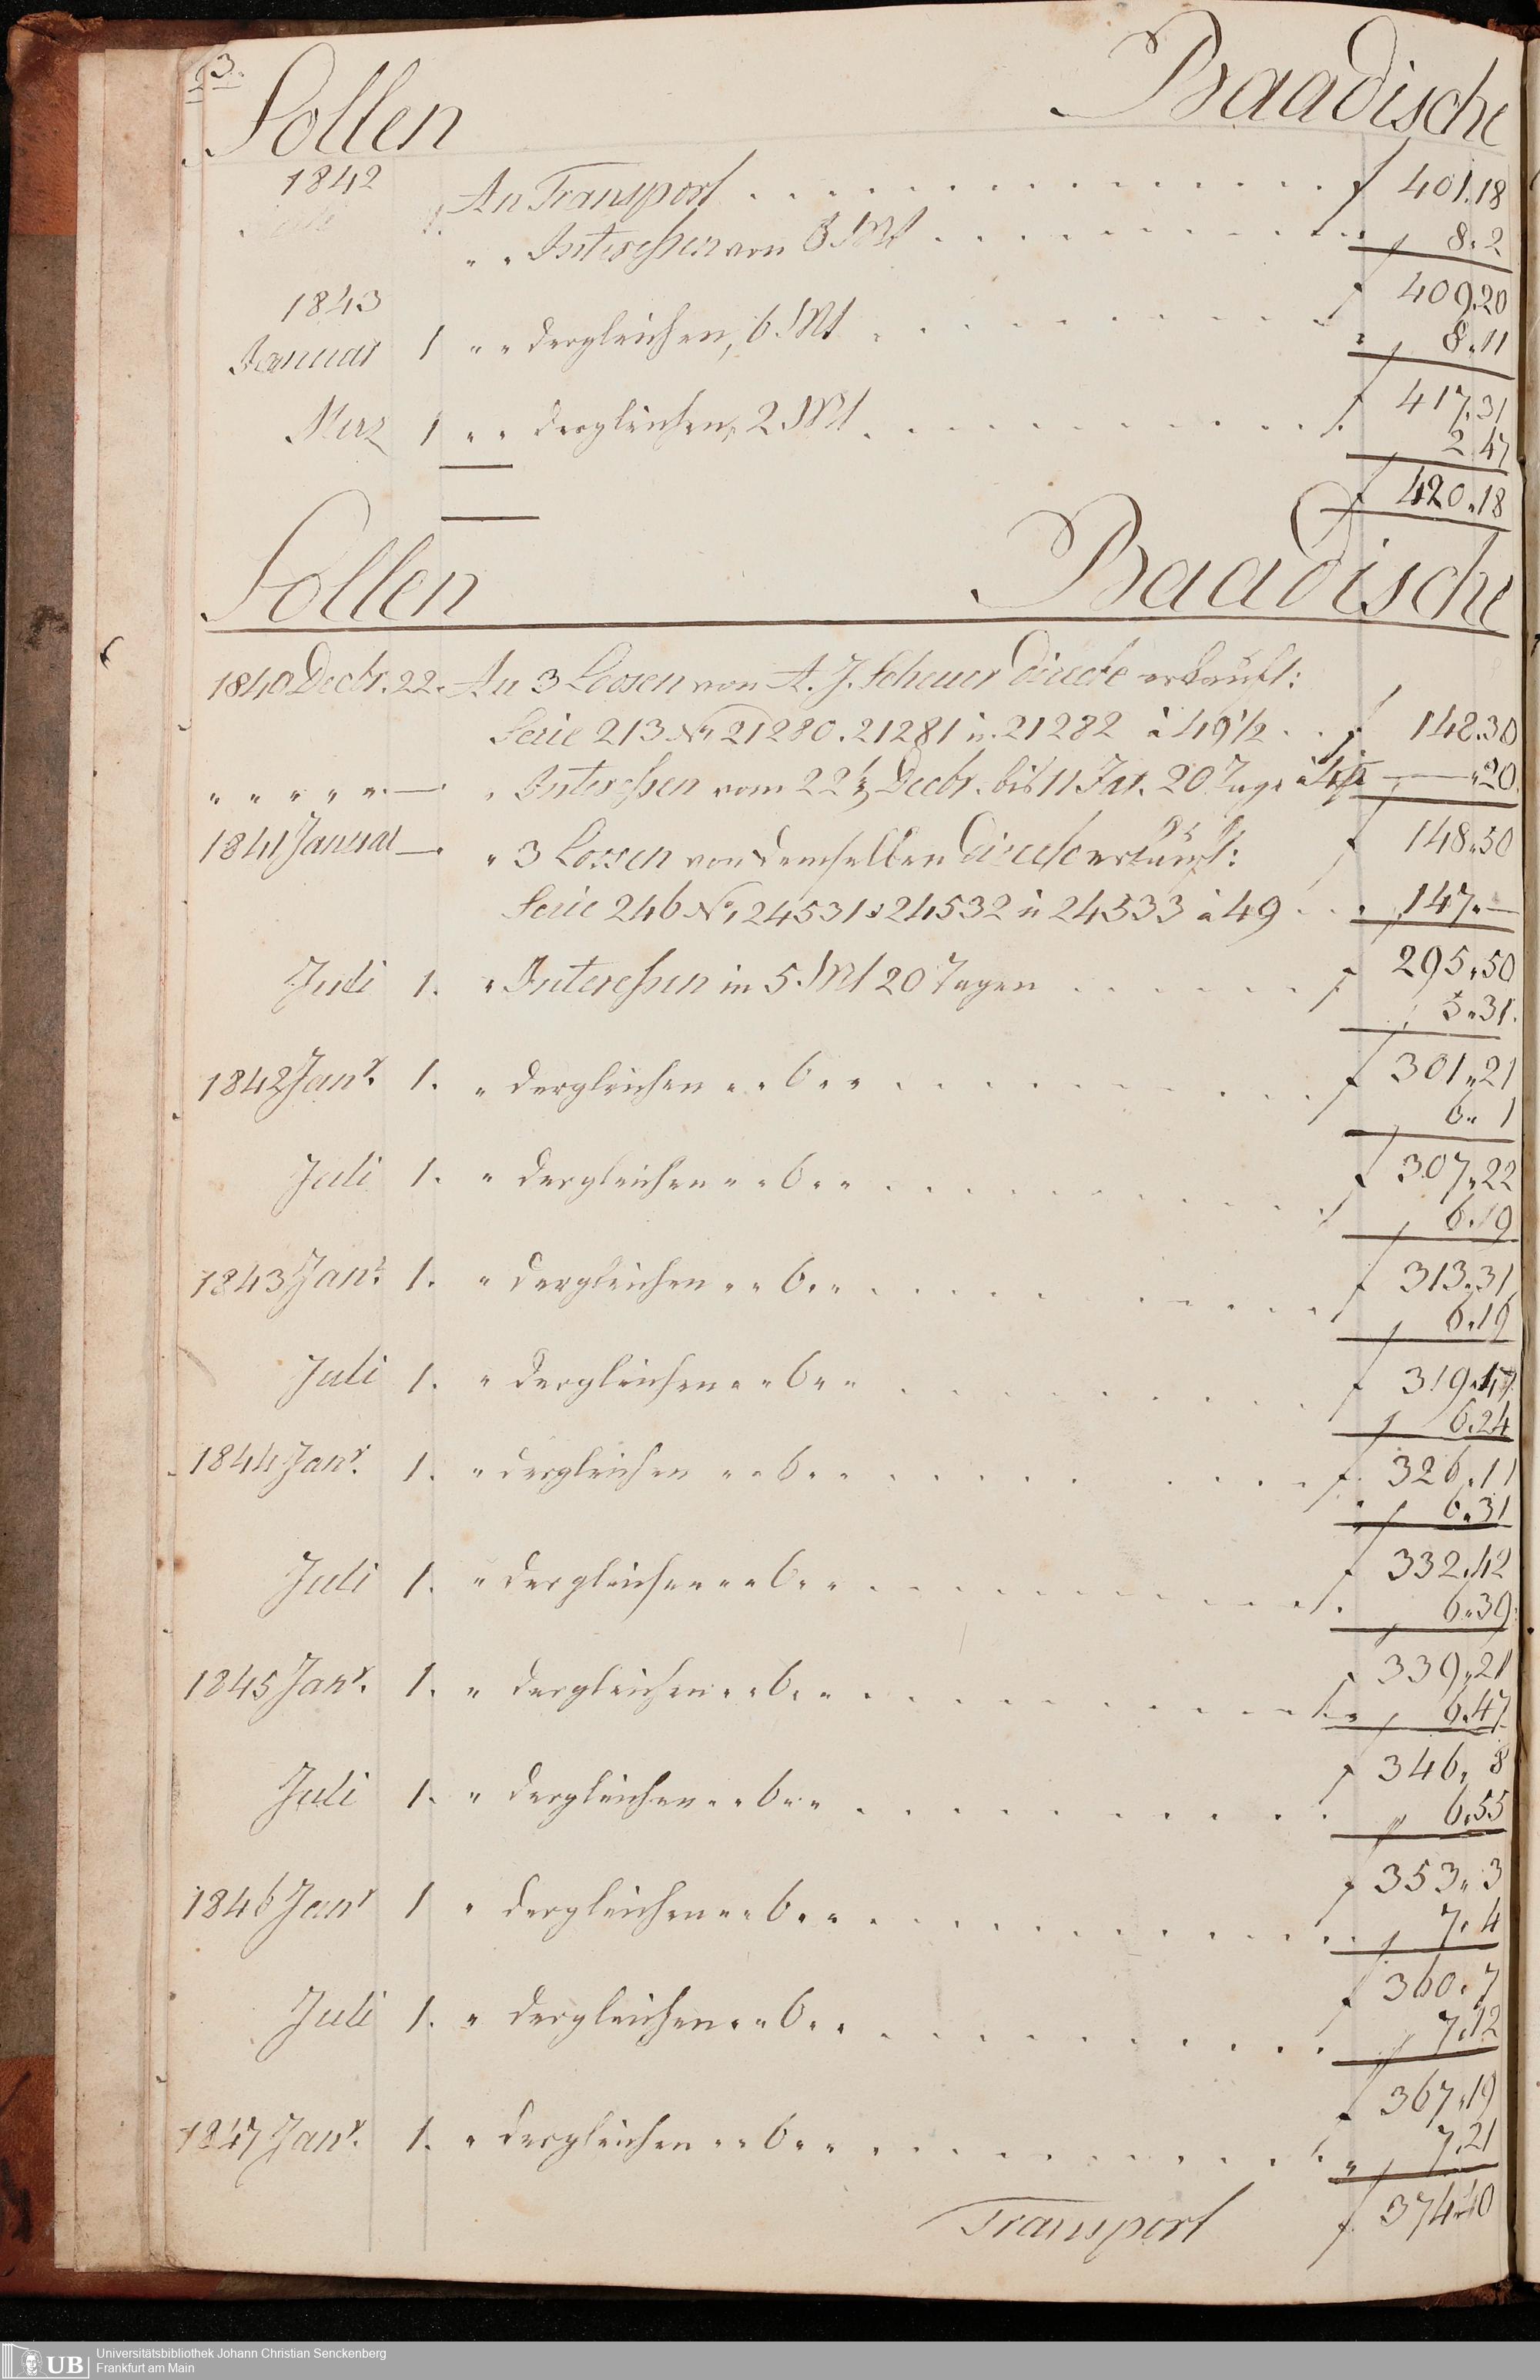 3.
Sollen Baadische
1842 An Transport f 401.18
" " Interessen von 6 Mt " 8.2
f 409.20
1843
Januar 1 " " dergleichen, 6 Mt " 8.11
f 417.31
Merz 1 " " dergleichen, 2 Mt 2.47
f 420.18
Sollen Baadische
1840 Decbr. 22. An 3 Loosen von A. J. Scheuer Directe erkauft:
Serie 213 No 21280. 21281 u. 21282 à 49 1/2 f 148.30
" " " " " — " Interessen vom 22 Decbr. bis 11 Jar. 20 Tage — " 20
f 148.50
1841 Januar — " 3 Lossen von demselben Directe erkauft:
Serie 246 No. 24531. 24532 u 24533 à 49 " 147. —
f 295.50
Juli 1. " Interessen in 5 Mt 20 Tagen 5.31.
f 301.21
1842 Janr. 1. " dergleichen " " 6 " " 6. 1
f 307.22
Juli 1. " dergleichen " " 6 " " 6.19
f 313.31
1843 Janr. 1. " dergleichen " " 6 " " 6.16
f 319.47
Juli 1. " dergleichen " " 6 " " 6.24
f 326.11
1844 Janr. 1. " dergleichen " " 6 " " 6.31
f 332.42
Juli 1. " dergleichen " " 6 " " 6.39
339.21
1845 Janr. 1. " dergleichen " " 6 " " 6.47
f 346. 8
Juli 1. " dergleichen " " 6 " " 6.55
f 353. 3
1846 Janr 1 " dergleichen " " 6 " " 7. 4
f 360. 7
Juli 1. " dergleichen " " 6 " " 7.12
f 367.19
1847 Janr. 1. " dergleichen " " 6 " " 7.21
Transport f 374.40
UB
Universitätsbibliothek Johann Christian Senckenberg
Frankfurt am Main